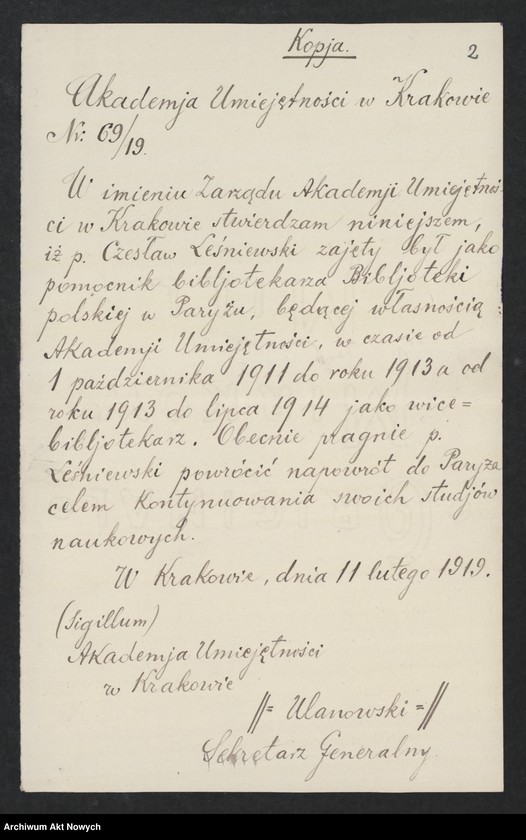 Kopja.
2
Akademja Umiejętności w Krakowie
Nr: 69/19.
W imieniu Zarządu Akademji Umiejętnoś-
ci w Krakowie stwierdzam niniejszem,
iż p. Czesław Leśniewski zajęty był jako
pomocnik bibljotekarza Bibljoteki
polskiej w Paryżu, będącej własnością
Akademji Umiejętności, w czasie od
1 października 1911 do roku 1913 a od
roku 1913 do lipca 1914 jako wice=
bibljotekarz. Obecnie pragnie p.
Leśniewski powrócić napowrót do Paryża
celem kontynuowania swoich studjów
naukowych.
W Krakowie, dnia 11 lutego 1919.
(Sigillum)
Akademja Umiejętności
w Krakowie
//= Ulanowski =//
Sekretarz Generalny
Archiwum Akt Nowych